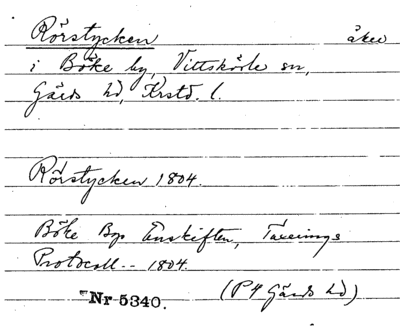 Rörstycken åker
i Böke by, Vittskövle sn,
Gärds hd, Krstd. l.
Rörstycken 1804.
Böke Bys Enskiften, Taxerings
Protocoll -- 1804.
Nr 5340. (P4 Gärds hd)